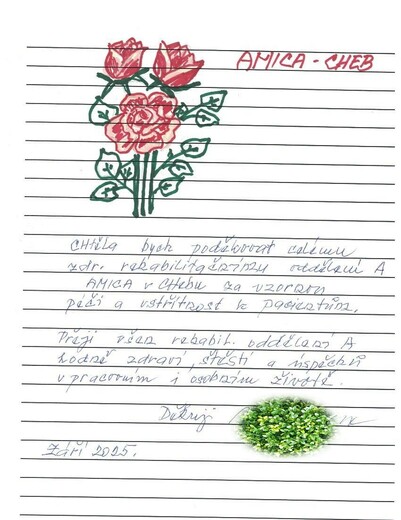 AMICA - CHEB
Chtěla bych poděkovat celému
zdr. rehabilitačnímu oddělení A
AMICA v CHebu za vzornou
péči a vstřícnost k pacientům.
Přeji všem rehabil. oddělení A
hodně zdraví, štěstí a úspěchů
v pracovním i osobním životě.
Děkuji
Září 2025.